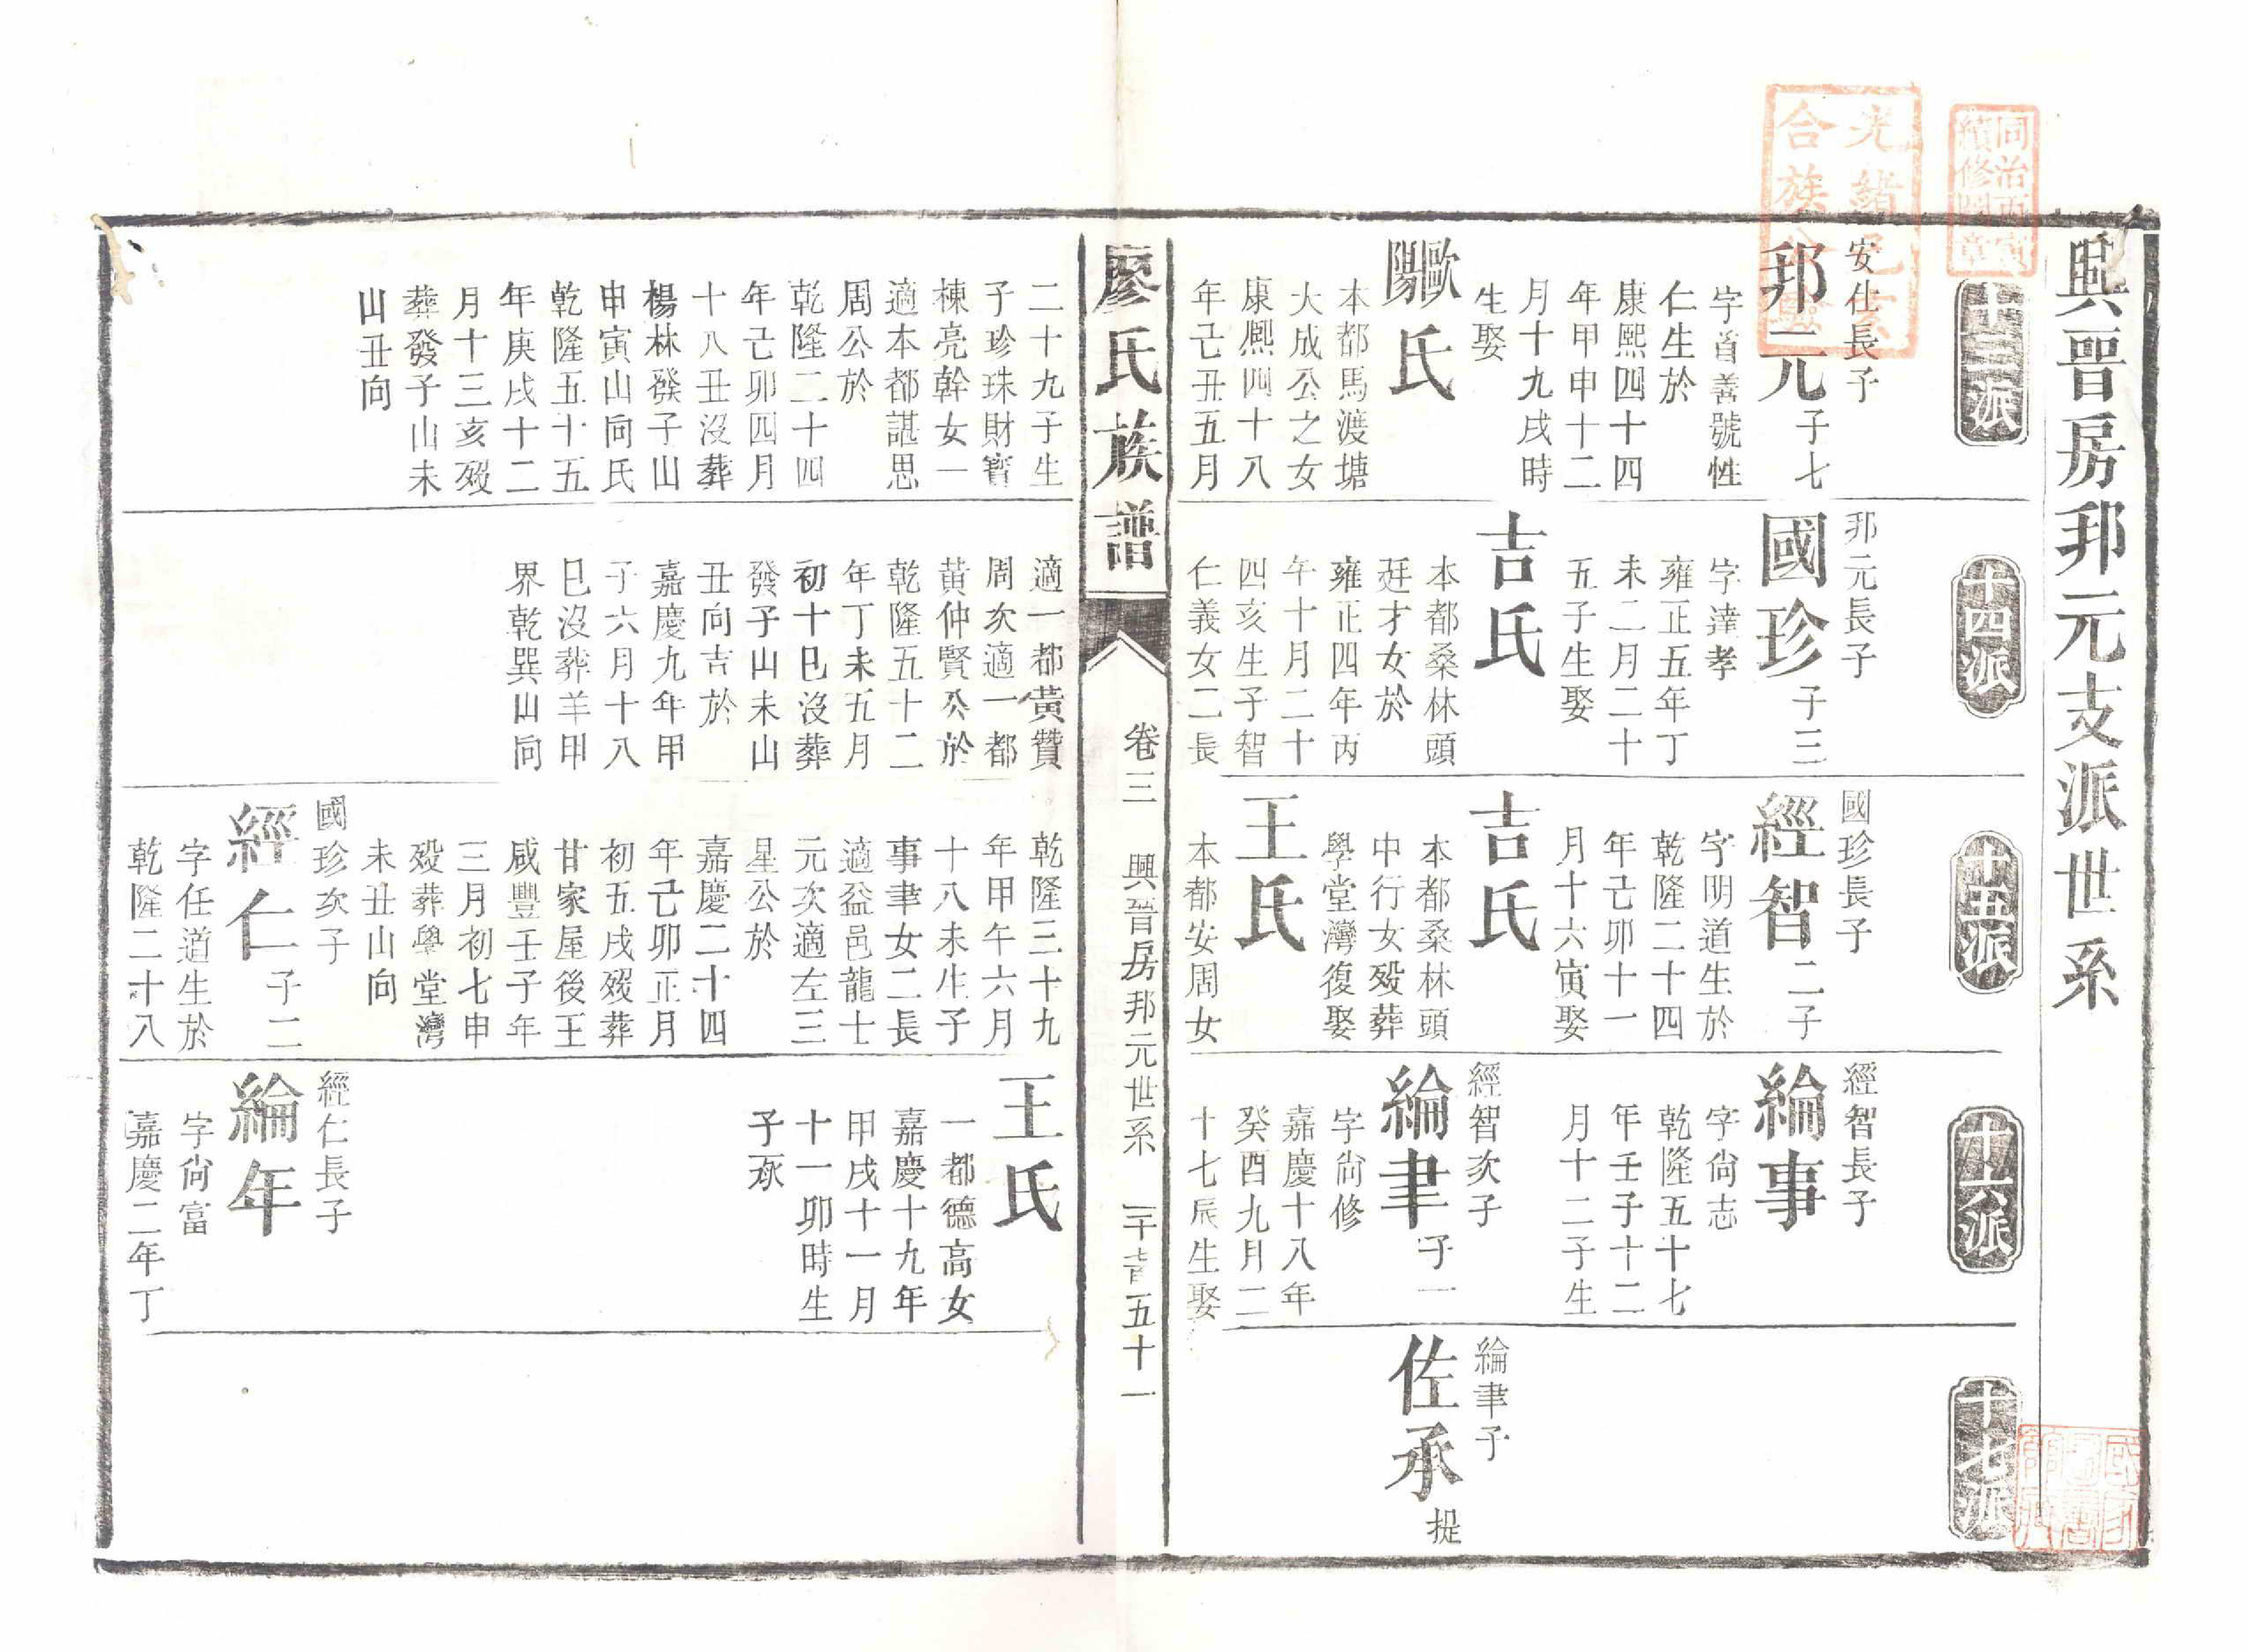 興晉房邦元支派世系
十三派
安仕長子
邦元 子七
字首善號性
仁生於
康熙四十四
年甲申十二
月十九戌時
生娶
歐陽氏
本都馬渡塘
大成公之女
康熙四十八
年己丑五月
二十九子生
子珍珠財寳
棟亮幹女一
適本都諶思
周公於
乾隆二十四
年己卯四月
十八丑沒葬
楊林發子山
申寅山向氏
乾隆五十五
年庚戌十二
月十三亥歿
葬發子山未
山丑向
十四派
邦元長子
國珍 子三
字達孝
雍正五年丁
未二月二十
五子生娶
吉氏
本都桑林頭
廷才女於
雍正四年丙
午十月二十
四亥生子智
仁義女二長
適一都黃贊
周次適一都
黃仲賢公於
乾隆五十二
年丁未五月
初十巳沒葬
發子山未山
丑向吉於
嘉慶九年甲
子六月十八
巳沒葬羊甲
界乾巽山向
十五派
國珍長子
經智 二子
字明道生於
乾隆二十四
年己卯十一
月十六寅娶
吉氏
本都桑林頭
中行女歿葬
學堂灣復娶
王氏
本都安周女
乾隆三十九
年甲午六月
十八未生子
事聿女二長
適益邑龍士
元次適左三
星公於
嘉慶二十四
年己卯正月
初五戌歿葬
甘家屋後王
咸豐壬子年
三月初七申
歿葬學堂灣
未丑山向
國珍次子
經仁 子二
字任道生於
乾隆二十八
十六派
經智長子
綸事
字尙志
乾隆五十七
年壬子十二
月十二子生
經智次子
綸聿 子一
字尙修
嘉慶十八年
癸酉九月二
十七辰生娶
王氏
一都德高女
嘉慶十九年
甲戌十一月
十一卯時生
子承
經仁長子
綸年
字尙富
嘉慶二年丁
十七派
綸聿子
佐承 提
廖氏族譜
卷三
興晉房邦元世系
五十一